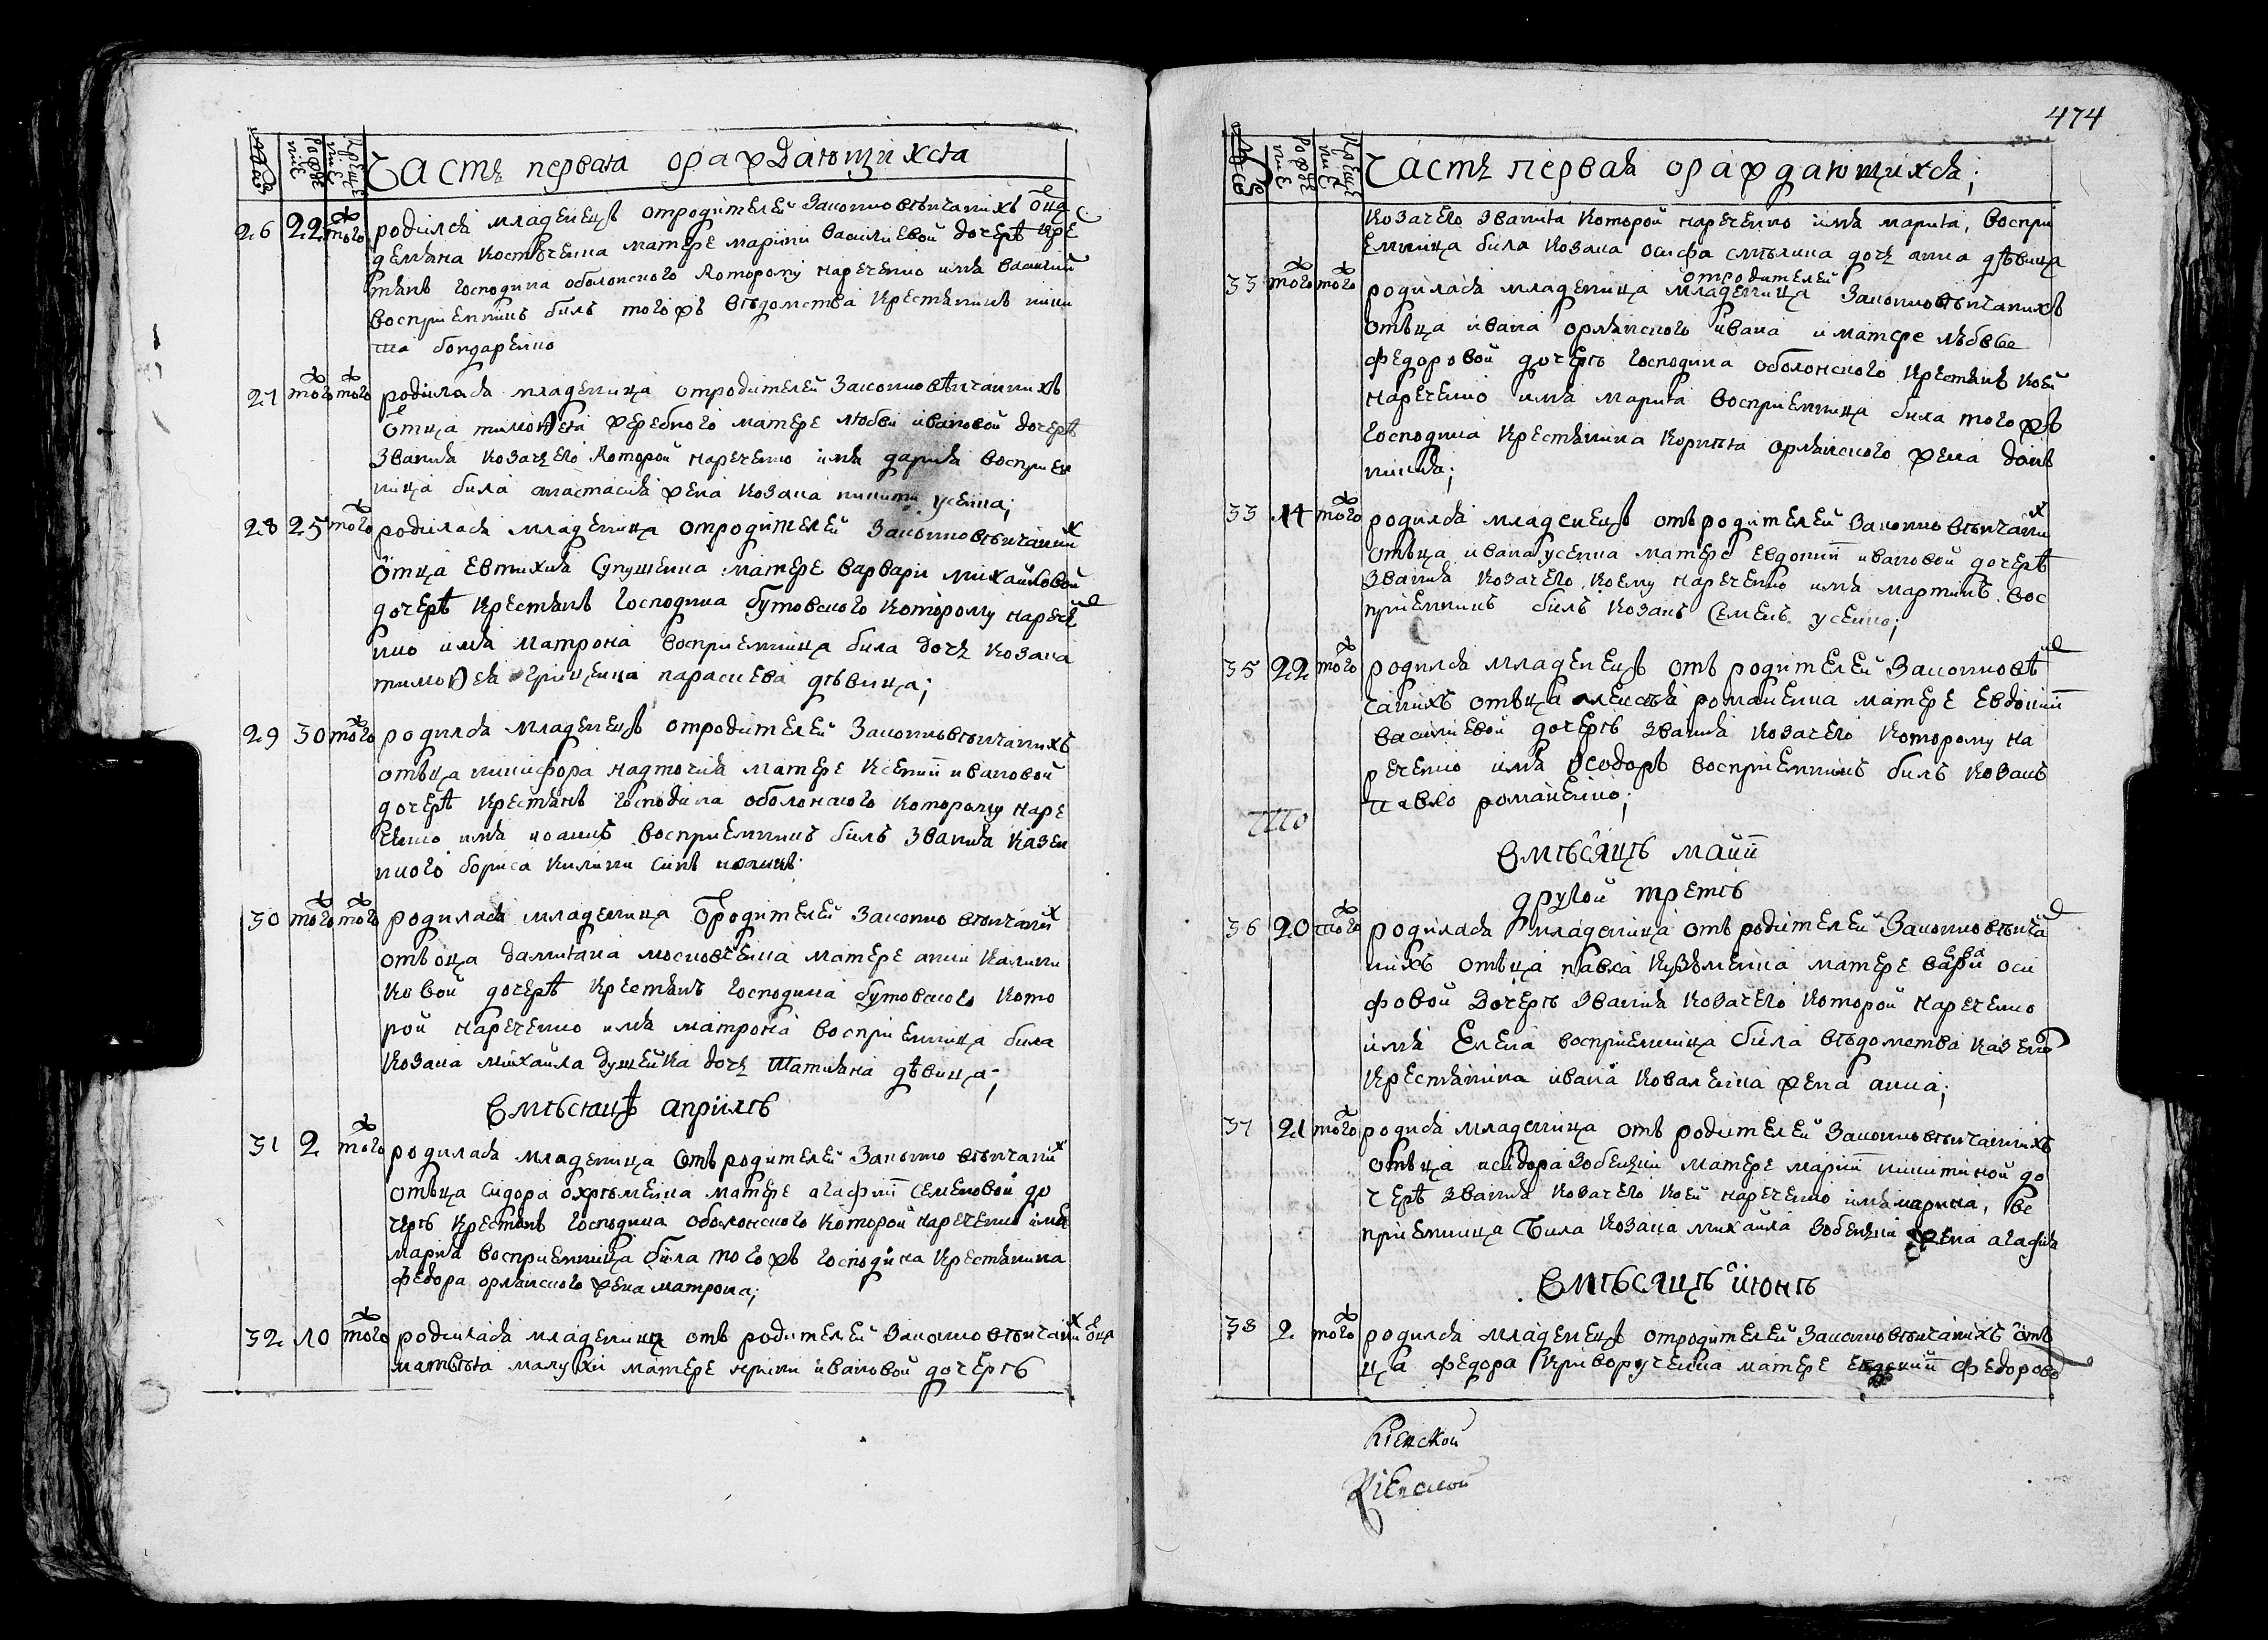 число
рожде
ние
креще
ние
Часть первая ораждающихся
26 22 того ж родился младенецъ отродителей законно вѣнчанихъ отца
демяна костюченка матере марини василиевой дочерѣ кре
стянъ господина оболонского которому наречено имя василий
восприемникъ билъ того жъ вѣдомства крестянинъ ники
та бондаренко
27 того ж того ж родилася младеница отродителей законно вѣнчаннихъ
отца тимоѳея жеребного матере любви ивановой дочерѣ
звания козачего которой наречено имя дария восприем
ница била анастасия жена козака никити усенка;
28 25 того ж родилася младеница отродителей законно вѣнчаних
отца евтихия супуненка матере варвари михайловой
дочерѣ крестянъ господина бутовского которому нарече
нно имя матрона восприемница била дочь козака
тимоѳея гриценка параскева дѣвица;
29 30 того ж родился младенецъ отродителей законно вѣнчанихъ
отъца никифора надточия матере ксении ивановой
дочерѣ крестянъ господина оболонского которому наре
чено имя иоаннъ восприемникъ билъ звания казен
ного бориса килини синъ иоаннъ
30 того ж того ж родилася младеница отродителей законно вѣнчаних
отъ оца дамияна московченка матере анни калини
ковой дочерѣ крестянъ господина бутовского кото
рой наречено имя матрона восприемница била
козака михаила душейка дочь татияна дѣвица;
Вмѣсяцъ априлѣ
31 2 того ж родилася младеница отъ родителей законно вѣнчаних
отъца сидора охрѣменка матере агафии семеновой до
черѣ крестянъ господина оболонского которой наречено имя
мария восприемница била того жъ господина крестянина
федора орлянского жена матрона;
32 10 того ж родилася младеница отъ родителей законно вѣнчаних оца
матвѣя малухи матере ирини ивановой дочерѣ
474
число
рожде
ние
креще
ние
Часть первая ораждающихся;
козачего звания которой наречено имя мария, воспри
емница била козака осифа смѣлика дочь анна дѣвица
отродителей
33 того ж того ж родилася младеница младеница законно вѣнчанихъ
отъца ивана орлянского ивана и матере любвве
федоровой дочерѣ господина оболонского крестянъ коей
наречено имя мария восприемница била того жъ
господина крестянина корнія орлянского жена доми
никия;
33 14 того ж родился младенецъ отъ родителей законно вѣнчаних
отъца ивана усенка матере евдокии ивановой дочерѣ
звания козачего коему наречено имя мартинъ вос
приемникъ билъ козакъ Семенъ усенко;
35 22 того ж родился младенецъ отъ родителей законно вѣн
чанихъ отъца алексѣя романенка матере евдокии
василиевой дочерѣ звания козачего которому на
речено имя ѳеодоръ восприемникъ билъ козакъ
павло романенко;
Вмѣсяцѣ маии
другой третѣ
36 20 того ж родилася младеница отъ родителей законно вѣнча
нихъ отъца павла кузьменка матере варвари оси
фовой дочерѣ звания козачего которой наречено
имя Елена восприемница била вѣдомства казеного
крестянина ивана коваленка жена анна;
37 21 того ж родися младеница отъ родителей законно вѣнчаннихъ
отъца исидора зобенки матере марии никитиной до
черѣ звания козачего коей наречено имя марина, вс
приемница била козака михаила зобенки жена агафия
Вмѣсяцѣ июнѣ
38 2 того ж родился младенецъ отродителей законно вѣнчанихъ отъ
ца федора криворученка матере евдокии федоровой
Киевской
Киевской